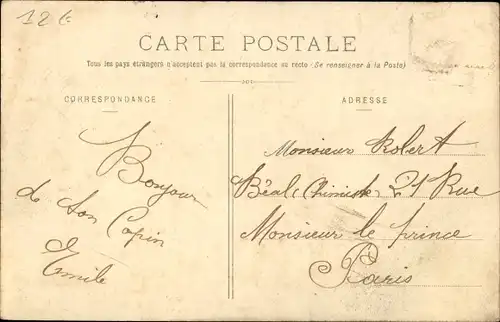 12€
CARTE POSTALE
Tous les pays étrangers n'acceptent pas la correspondance au recto (Se renseigner à la Poste)
CORRESPONDANCE
Bonjour
de ton Copin
Emile
ADRESSE
Monsieur Robert
Béal, Chimiste 21 Rue
Monsieur le prince
Paris